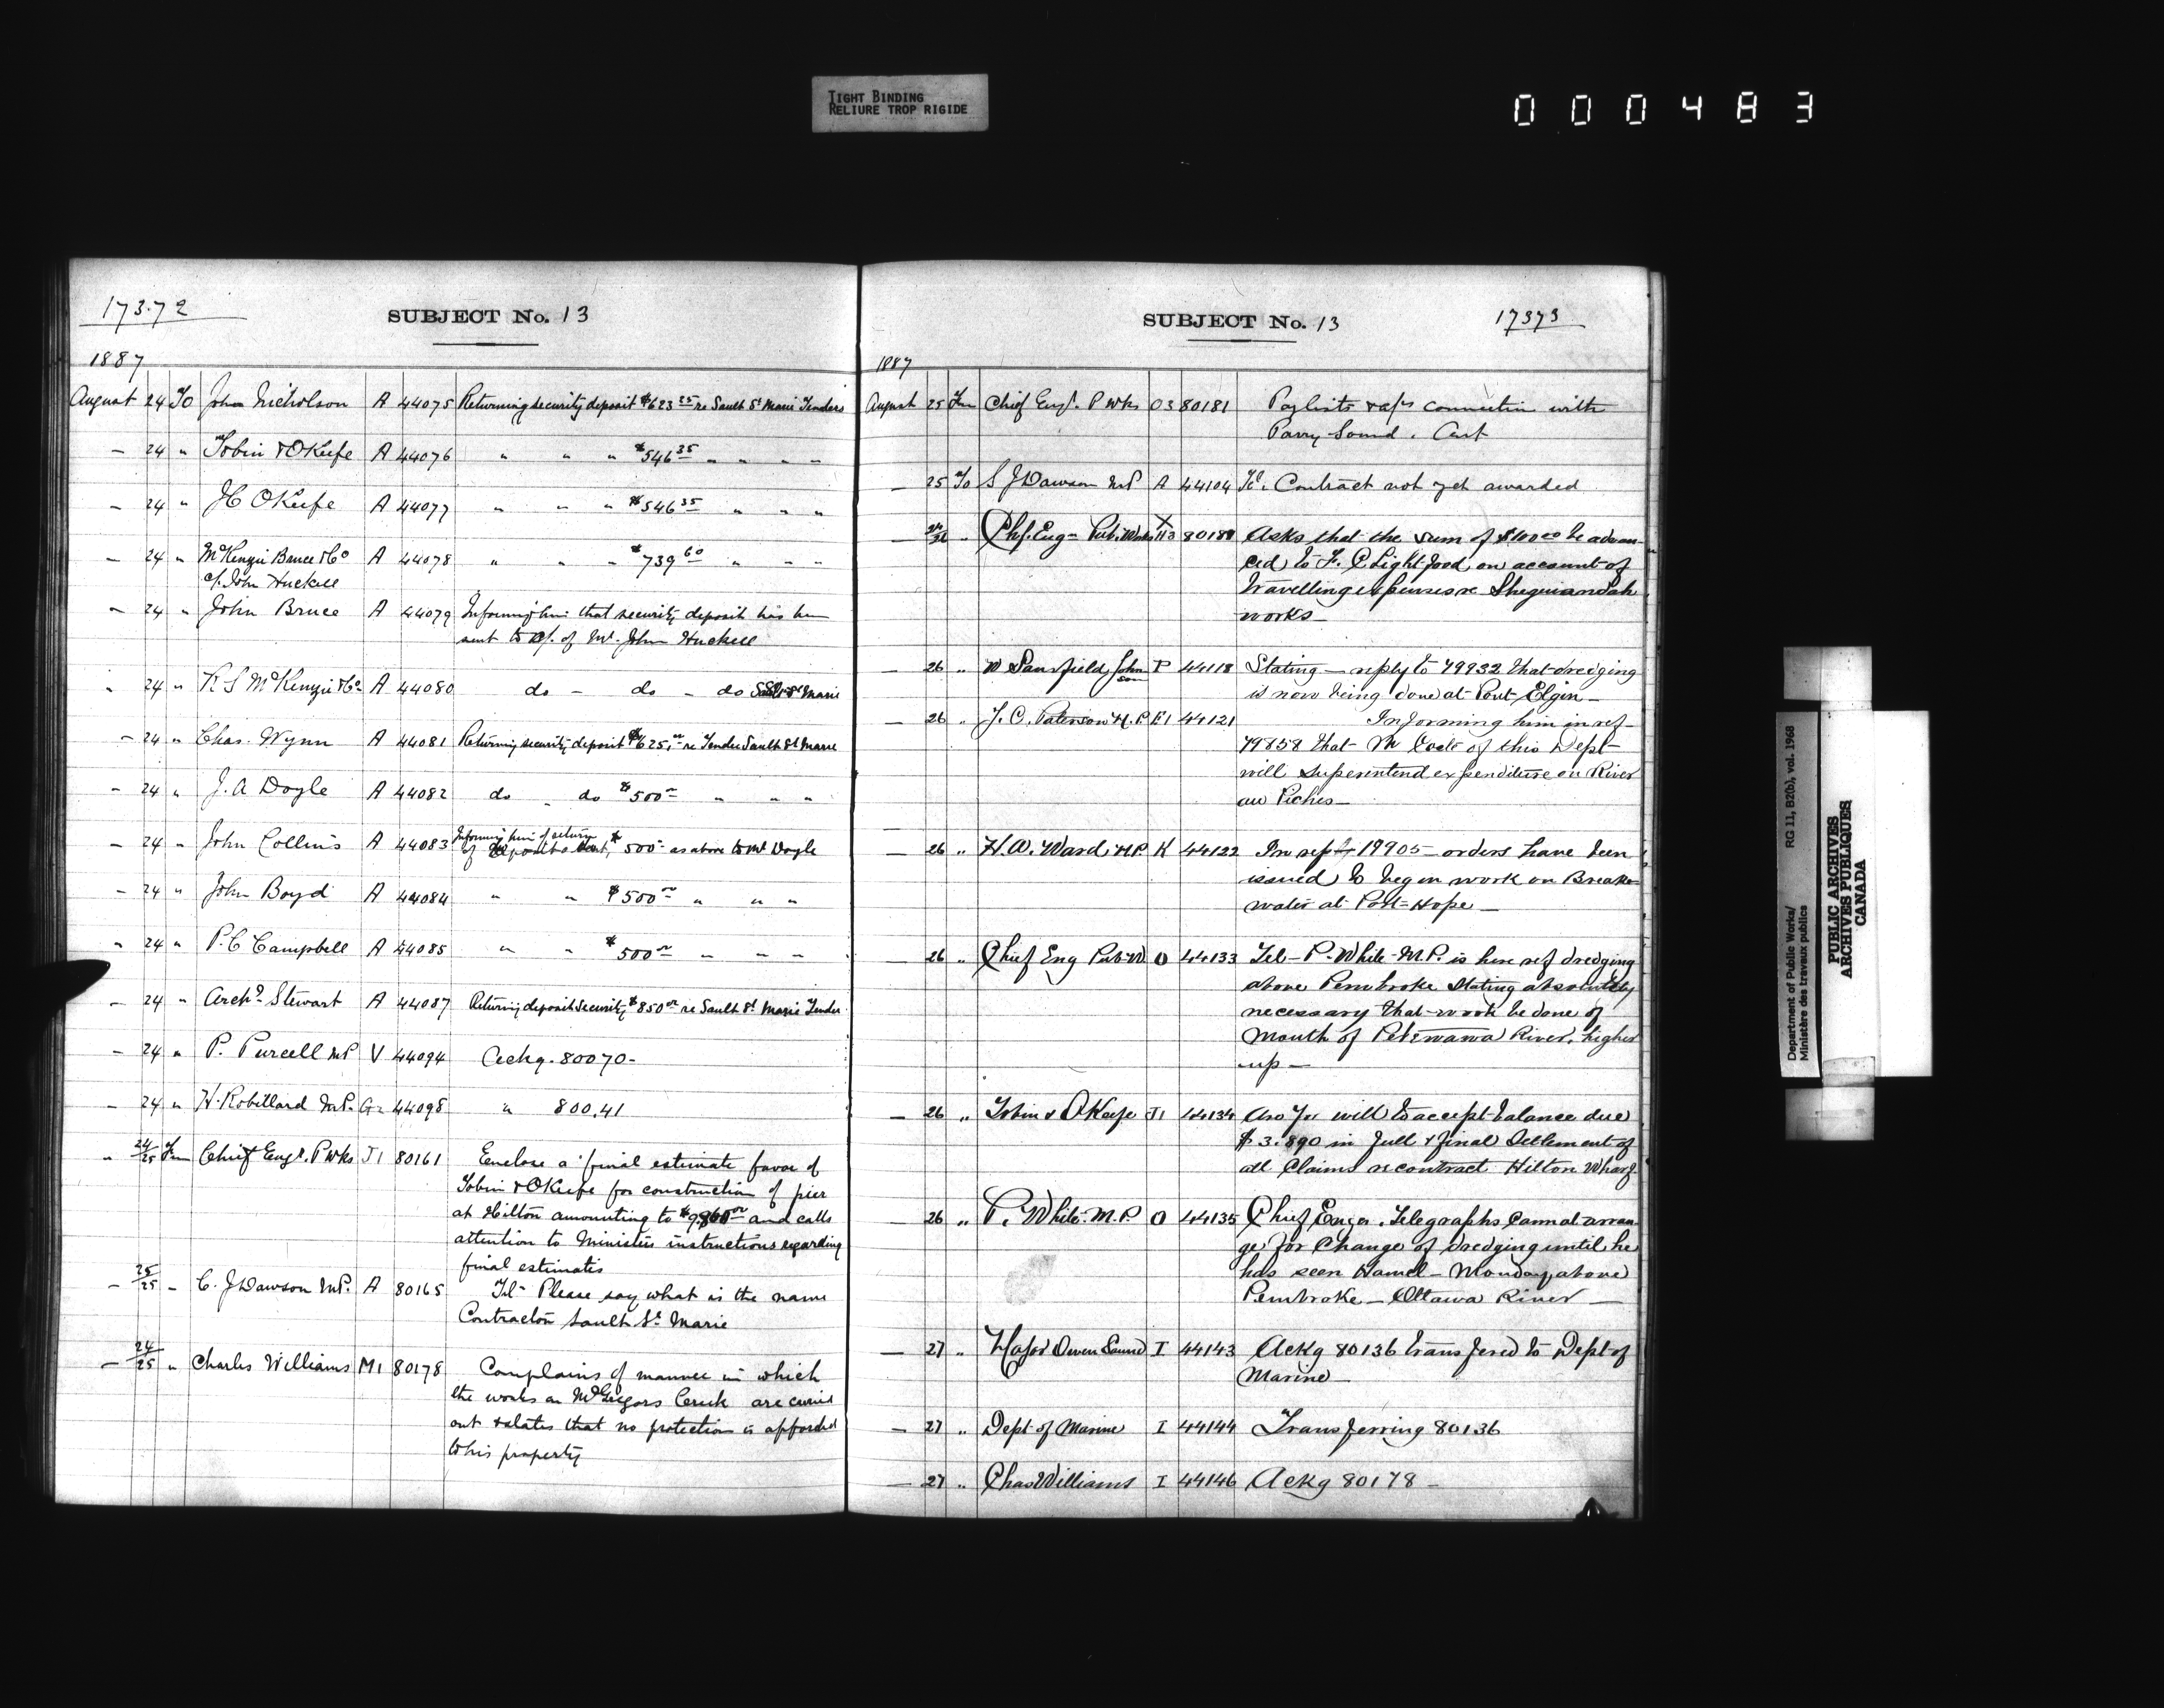 TIGHT BINDING
RELIURE TROP RIGIDE
000483
17372
SUBJECT No. 13
1887
August 24 To John Nicholson A 44075 Returning security deposit $623 25 re Sault St Marie Tenders
— 24 " Tobin & O'Keefe A 44076 " " " $546 35 " " " "
— 24 " J C O'Keefe A 44077 " " " $546 35 " " "
— 24 " McKenzie Bruce & Co A 44078 " " " $739 60 " " "
c/. John Huckell
— 24 " John Bruce A 44079 Informing him that security deposit has been
sent to c/. of Mr. John Huckell
" 24 " McKenzie & Co A 44080 do - do - do Sault St Marie
— 24 " Chas. Wynn A 44081 Returning security deposit $625.00 re Tender Sault St Marie
— 24 " J. A Doyle A 44082 do " do $500 00 " " "
— 24 " John Collins A 44083 Informing him of return
of deposit $500 as above to Mr Doyle
— 24 " John Boyd A 44084 " " $500 00 " " "
" 24 " P. C Campbell A 44085 " " $500 00 " " "
— 24 " Archd Stewart A 44087 Returning deposit security $850 00 re Sault St Marie Tender
— 24 " P. Purcell MP V 44094 Ackg. 80070-
— 24 " H. Robillard M.P. G2 44098 " 800.41
" 24/25 Fm Chief Engr. P Wks J1 80161 Enclose a final estimate favor of
Tobin & O'Keefe for construction of pier
at Hilton amounting to and calls
attention to Ministers instructions regarding
final estimates
— 25/25 - Dawson M.P. A 80165 Tel- Please say what is the name
Contractor Sault St Marie
— 24/25 " Charles Williams M1 80178 Complains of manner in which
the works on McGregors Creek are carried
out & states that no protection is afforded
to his property
SUBJECT No. 13
17373
1887
August 25 Fm Chief Engr. P Wks O3 80181 Paylists & a/cs connection with
Parry Sound.
— 25 To S J Dawson M.P A 44104 Tel. Contract not yet awarded
— " Chf. Eng- Pub. Works X 80188 Asks that the sum of $100 00 be advan-
ced to F. C Lightfood on account of
travelling expenses re Sheguiandah
works -
— 26 " W Sansfield Johnson P 44118 Stating - reply to 79932 that dredging
is now being done at Port Elgin -
— 26 " J. C. Paterson M.P. E1 44121 Informing him in ref-
79858 that Mr of this Dept-
will superintend expenditure on River
au Piches -
— 26 " H. A. Ward M.P. K 44122 In ref to 79905 - orders have been
issued to begin work on Break-
water at Port-Hope -
— 26 " Chief Eng Pub. W O 44133 Tel - P. White M.P. is here ref dredging
above Pembroke stating absolutely
necessary that work be done of
Mouth of Petewawa River, higher
up -
— 26 " Tobin & O'Keefe J1 44134 Are you will to accept balance due
$ 3.890 in full & final Settlement of
all Claims re contract Hilton Wharf
— 26 " P. White. M.P. O 44135 Chief Enger. Telegraphs Cannot arran-
ge for Change of dredging until he
has seen Hamel - Monday, above
Pembroke - Ottawa River -
— 27 " Major Owen Sound I 44143 Ackg 80136 transfered to Dept of
Marine -
— 27 " Dept of Marine I 44144 Transferring 80136
— 27 " Chas Williams I 44146 Ackg 80178 -
Department of Public Works/ RG 11, B2(b), vol. 1968
Ministère des travaux publics
PUBLIC ARCHIVES
ARCHIVES PUBLIQUES
CANADA